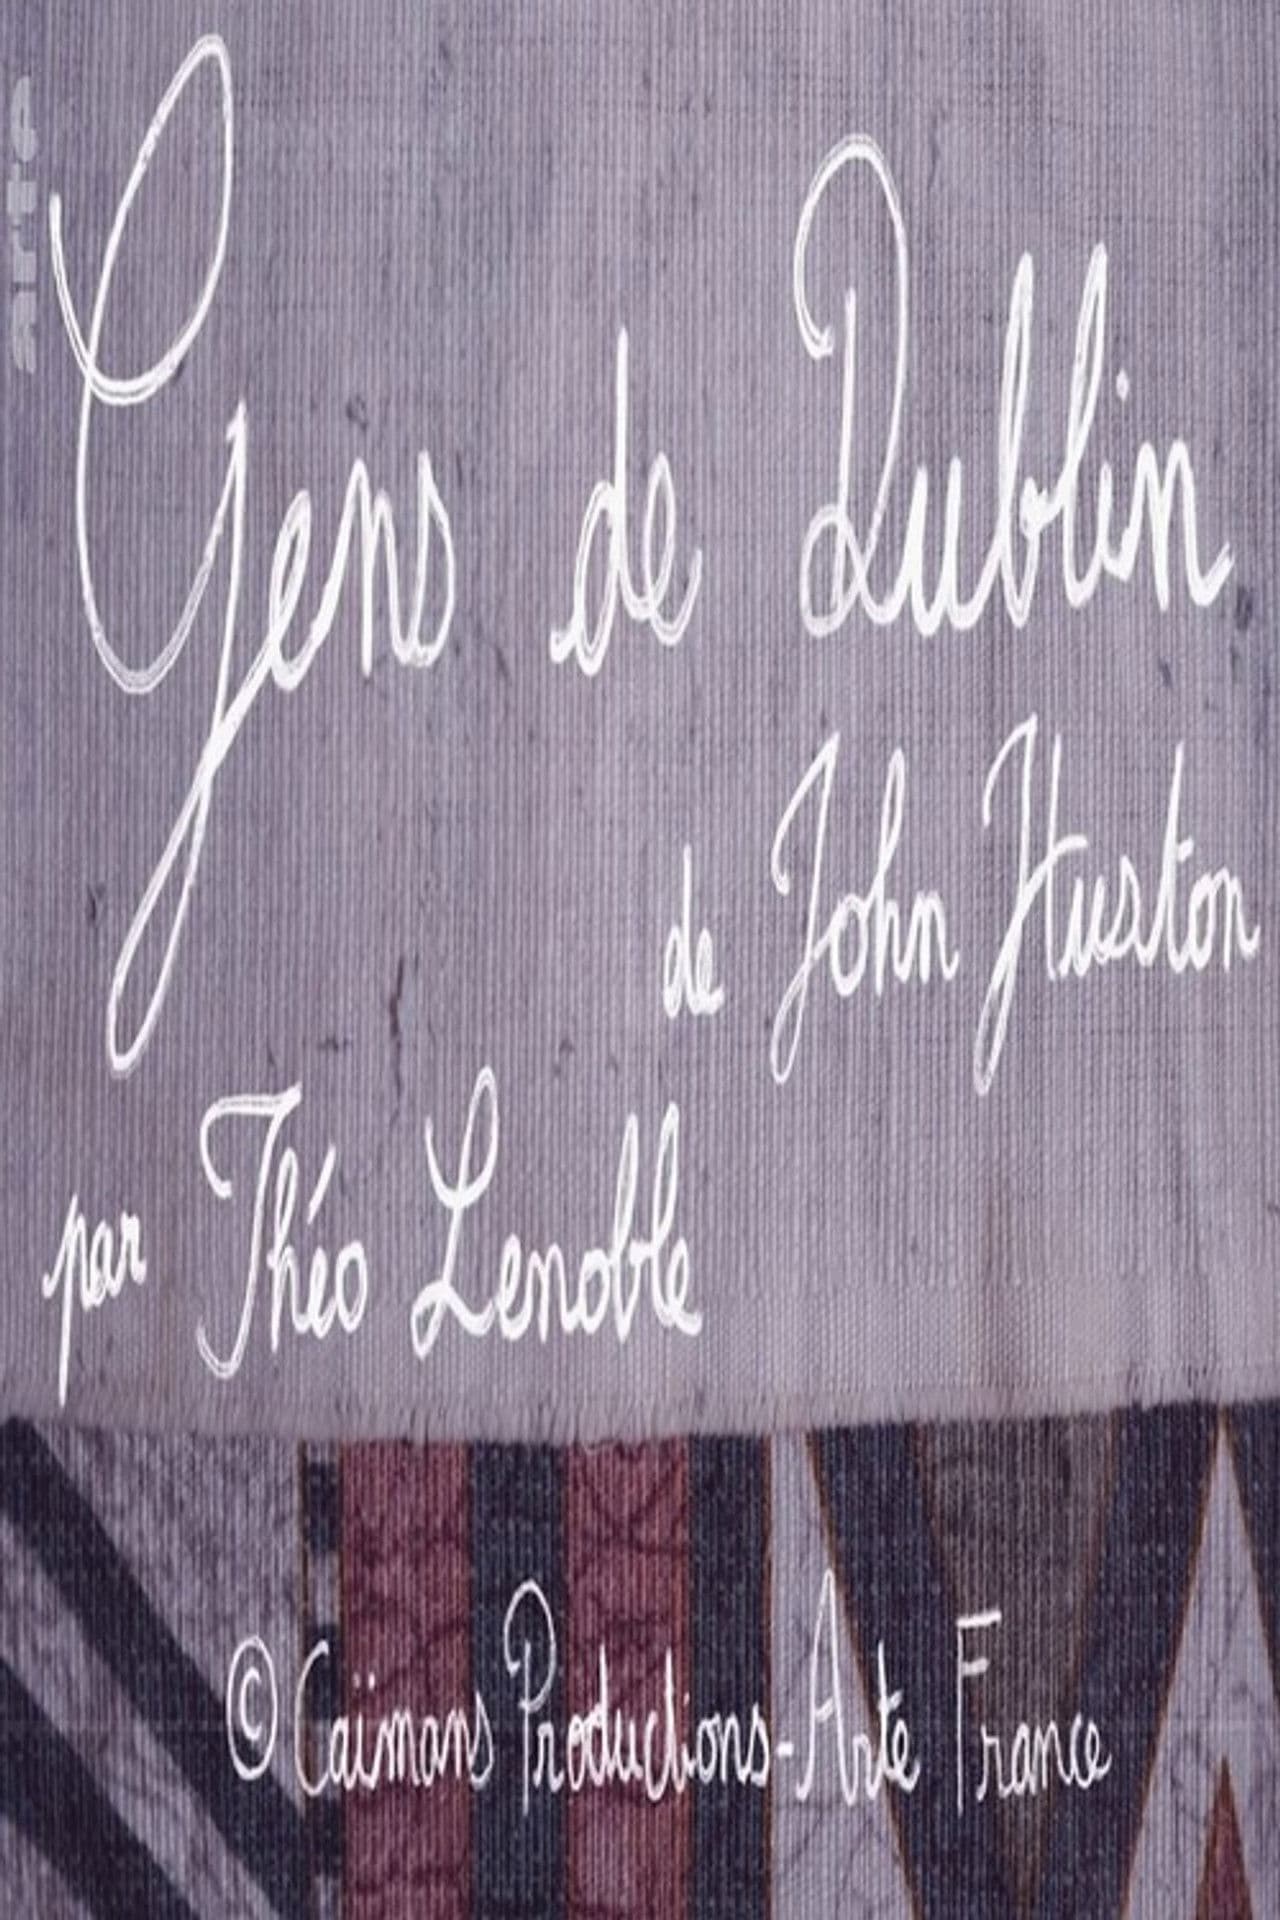 arte
Gens de Dublin
de John Huston
par Théo Lenoble
© Caïmans Productions-Arte France